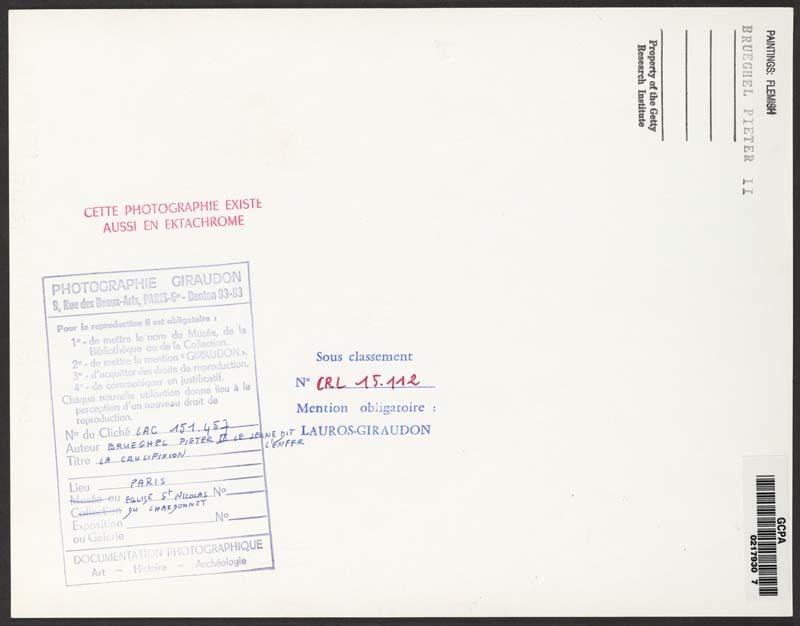 PAINTINGS: FLEMISH
BRUEGHEL PIETER II
Property of the Getty
Research Institute
CETTE PHOTOGRAPHIE EXISTE
AUSSI EN EKTACHROME
PHOTOGRAPHIE GIRAUDON
9, Rue des Beaux-Arts, PARIS-6e - Danton 93-83
Pour la reproduction il est obligatoire :
1° - de mettre le nom du Musée, de la
Bibliothèque ou de la Collection.
2° - de mettre la mention « GIRAUDON ».
3° - d'acquitter des droits de reproduction.
4° - de communiquer un justificatif.
Chaque nouvelle utilisation donne lieu à la
perception d'un nouveau droit de
reproduction.
N° du Cliché LAC 151.457
Auteur BRUEGHEL PIETER II LE JEUNE DIT
L'ENFER
Titre LA CRUCIFIXION
Lieu PARIS
Musée ou EGLISE St NICOLAS N°
Collection DU CHARDONNET
Exposition N°
ou Galerie
DOCUMENTATION PHOTOGRAPHIQUE
Art - Histoire - Archéologie
Sous classement
N° CRL 15.112
Mention obligatoire :
LAUROS-GIRAUDON
GCPA
0217930 7